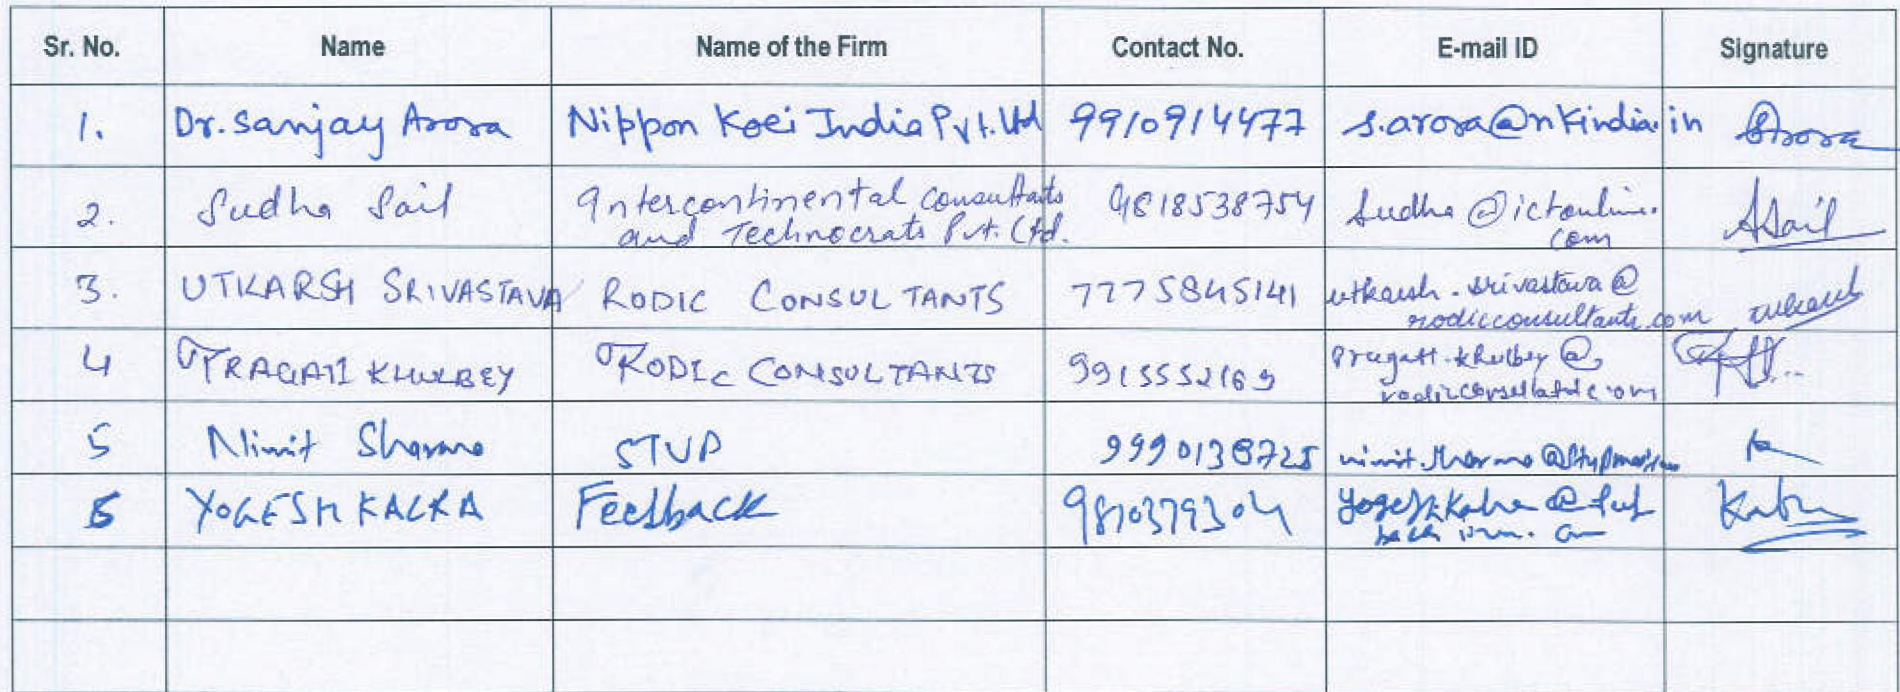 Sr. No. Name Name of the Firm Contact No. E-mail ID Signature
1. Dr. Sanjay Arora Nippon Koei India Pvt. Ltd 9910914477 s.arora@nkindia.in Arora
2. Sudha Sail Intercontinental Consultants 9818538754 Sudha @ictonline.
and Technocrats Pvt. Ltd. com ASail
3. UTKARSH SRIVASTAVA RODIC CONSULTANTS 7775845141 utkarsh.srivastava@
rodicconsultants.com utkarsh
4 PRAGATI KHULBEY RODIC CONSULTANTS 9915552169 pragati.khulbey@
5 Nimit Sharma STUP 9990138725
6 YOGESH KALRA Feedback 9810379304